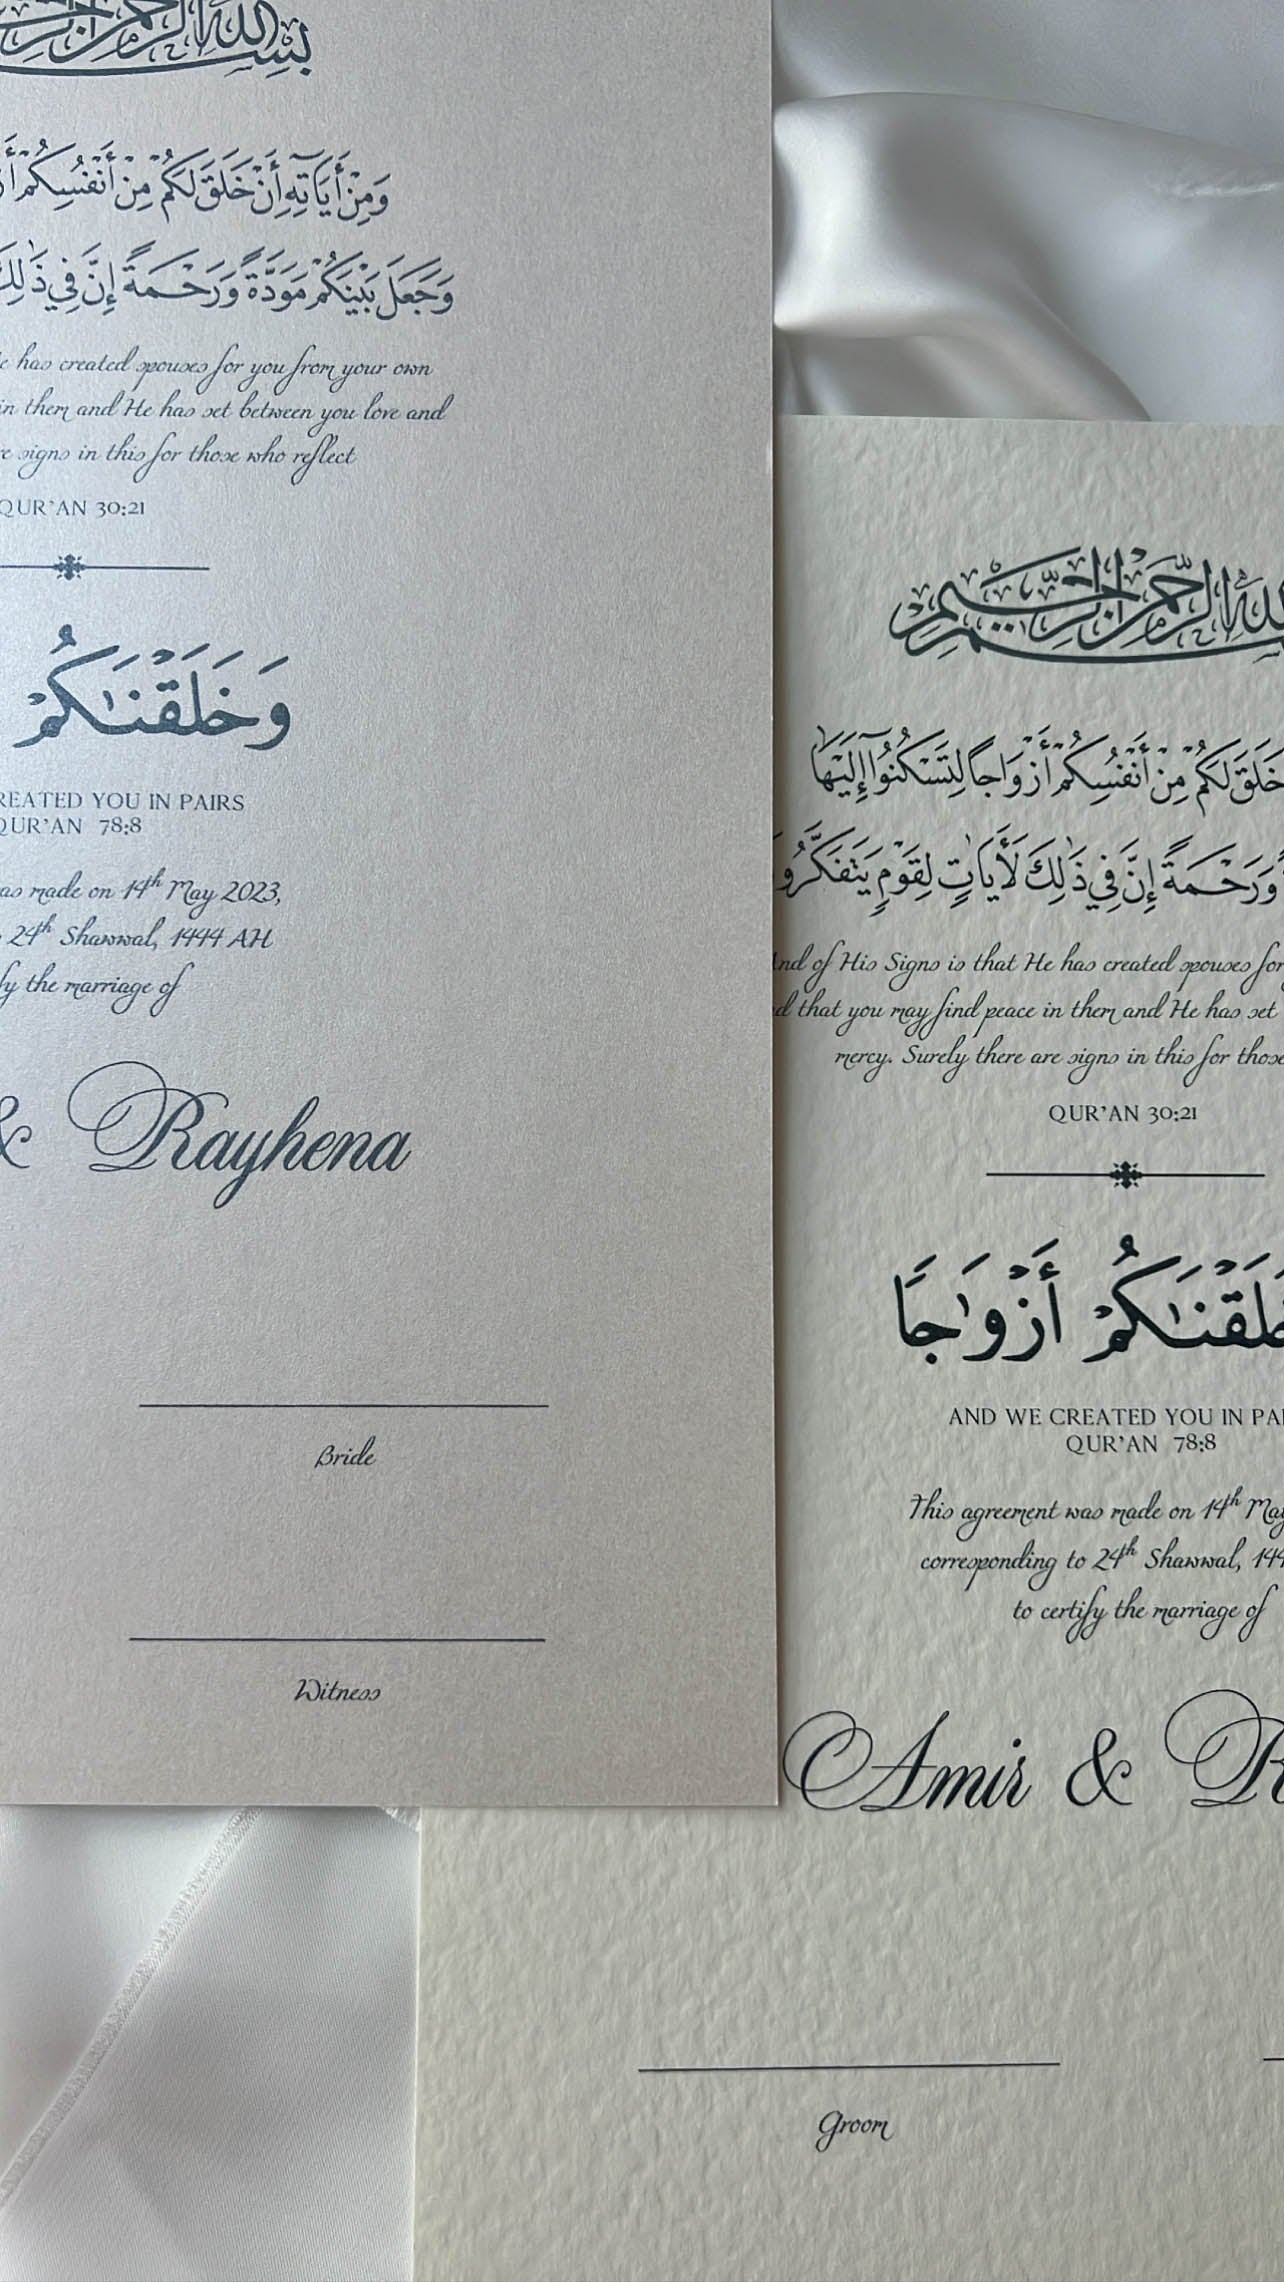 بسم الله الرحمن الرحيم
وَمِنْ أَيَاتِهِ أَنْ خَلَقَ لَكُمْ مِنْ أَنْفُسِكُمْ
وَجَعَلَ بَيْنَكُمْ مَوَدَّةً وَرَحْمَةً إِنَّ فِي ذَٰلِكَ
has created spouses for you from your own
in them and He has set between you love and
signs in this for those who reflect
QUR'AN 30:21
وَخَلَقْنَٰكُمْ
CREATED YOU IN PAIRS
QUR'AN 78:8
was made on 14th May 2023,
24th Shawwal, 1444 AH
the marriage of
& Rayhena
Bride
Witness
الله الرحمن الرحيم
خَلَقَ لَكُمْ مِنْ أَنْفُسِكُمْ أَزْوَاجاً لِتَسْكُنُوٓا إِلَيْهَا
وَرَحْمَةً إِنَّ فِي ذَٰلِكَ لَأَيَاتٍ لِقَوْمٍ يَتَفَكَّرُو
And of His Signs is that He has created spouses for
that you may find peace in them and He has set
mercy. Surely there are signs in this for those
QUR'AN 30:21
خَلَقْنَٰكُمْ أَزْوَٰجًا
AND WE CREATED YOU IN PAI
QUR'AN 78:8
This agreement was made on 14th May
corresponding to 24th Shawwal, 144
to certify the marriage of
Amir & R
Groom